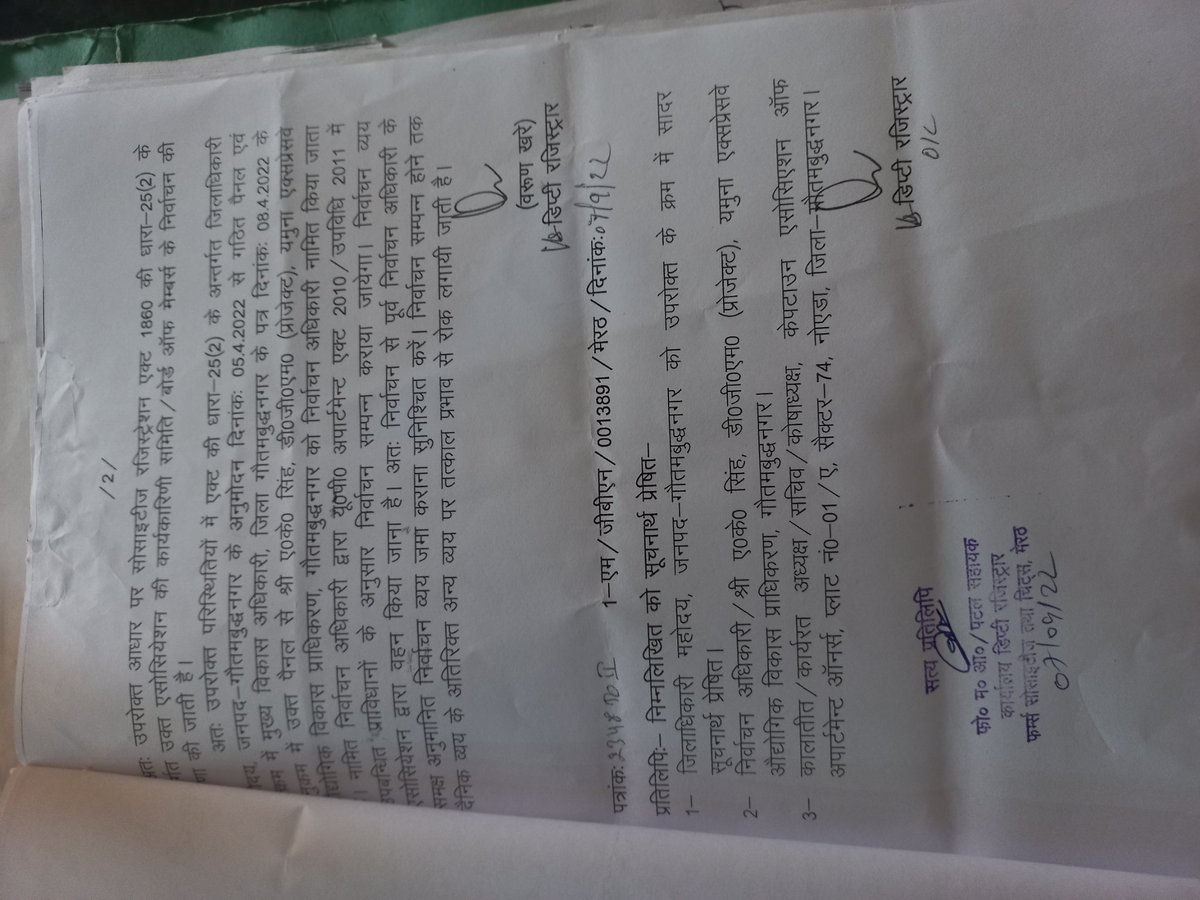 /2/
अतः उपरोक्त आधार पर सोसाइटीज रजिस्ट्रेशन एक्ट 1860 की धारा–25(2) के
र्गत उक्त एसोसियेशन की कार्यकारिणी समिति/बोर्ड ऑफ मेम्बर्स के निर्वाचन की
णा की जाती है।
अतः उपरोक्त परिस्थितियों में एक्ट की धारा–25(2) के अन्तर्गत जिलाधिकारी
दय, जनपद–गौतमबुद्धनगर के अनुमोदन दिनांकः 05.4.2022 से गठित पैनल एवं
क्रम में मुख्य विकास अधिकारी, जिला गौतमबुद्धनगर के पत्र दिनांकः 08.4.2022 के
में उक्त पैनल से श्री ए०के० सिंह, डी०जी०एम० (प्रोजेक्ट), यमुना एक्सप्रेसवे
द्योगिक विकास प्राधिकरण, गौतमबुद्धनगर को निर्वाचन अधिकारी नामित किया जाता
। नामित निर्वाचन अधिकारी द्वारा यू०पी० अपार्टमेन्ट एक्ट 2010/उपविधि 2011 में
उपबन्धित प्राविधानों के अनुसार निर्वाचन सम्पन्न कराया जायेगा। निर्वाचन व्यय
एसोसियेशन द्वारा वहन किया जाना है। अतः निर्वाचन से पूर्व निर्वाचन अधिकारी के
समक्ष अनुमानित निर्वाचन व्यय जमा कराना सुनिश्चित करें। निर्वाचन सम्पन्न होने तक
दैनिक व्यय के अतिरिक्त अन्य व्यय पर तत्काल प्रभाव से रोक लगायी जाती है।
(वरूण खरे)
डिप्टी रजिस्ट्रार
पत्रांकः 1–एम/जीबीएन/0013891/मेरठ/दिनांकः 07/9/22
प्रतिलिपिः– निम्नलिखित को सूचनार्थ प्रेषित–
1– जिलाधिकारी महोदय, जनपद–गौतमबुद्धनगर को उपरोक्त के क्रम में सादर
सूचनार्थ प्रेषित।
2– निर्वाचन अधिकारी/श्री ए०के० सिंह, डी०जी०एम० (प्रोजेक्ट), यमुना एक्सप्रेसवे
औद्योगिक विकास प्राधिकरण, गौतमबुद्धनगर।
3– कालातीत/कार्यरत अध्यक्ष/सचिव/कोषाध्यक्ष, केपटाउन एसोसिएशन ऑफ
अपार्टमेन्ट ऑनर्स, प्लाट नं०–01/ए, सेक्टर–74, नोएडा, जिला–गौतमबुद्धनगर।
डिप्टी रजिस्ट्रार
o/c
सत्य प्रतिलिपि
फो० म० आ०/पटल सहायक
कार्यालय डिप्टी रजिस्ट्रार
फर्म्स सोसाइटीज तथा चिट्स, मेरठ
07/09/22